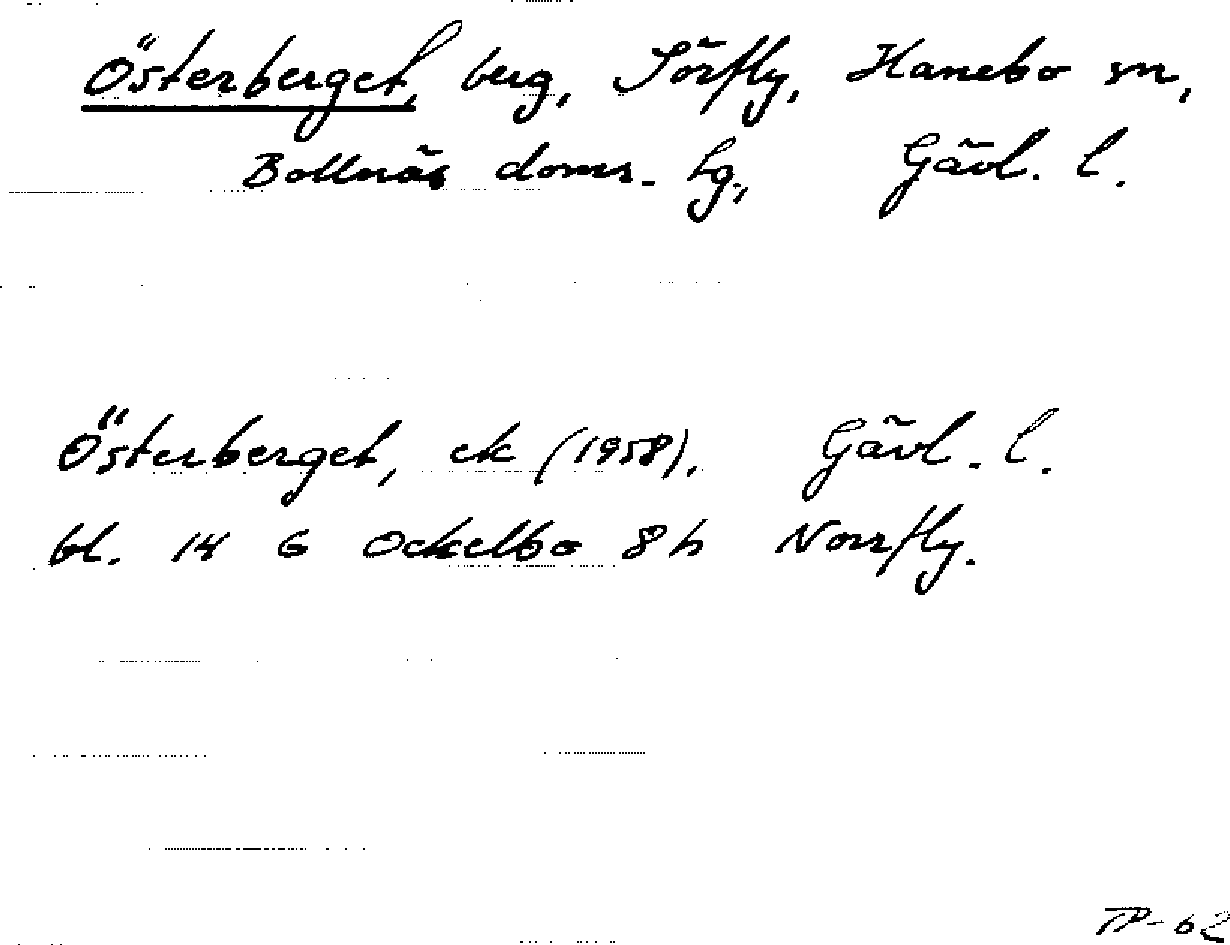 Österberget, berg, Sörfly, Hanebo sn,
Bollnäs doms. hg, Gävl. l.
Österberget, ek (1958). Gävl. l.
bl. 14 G Ockelbo 8 h Norrfly.
TP-62